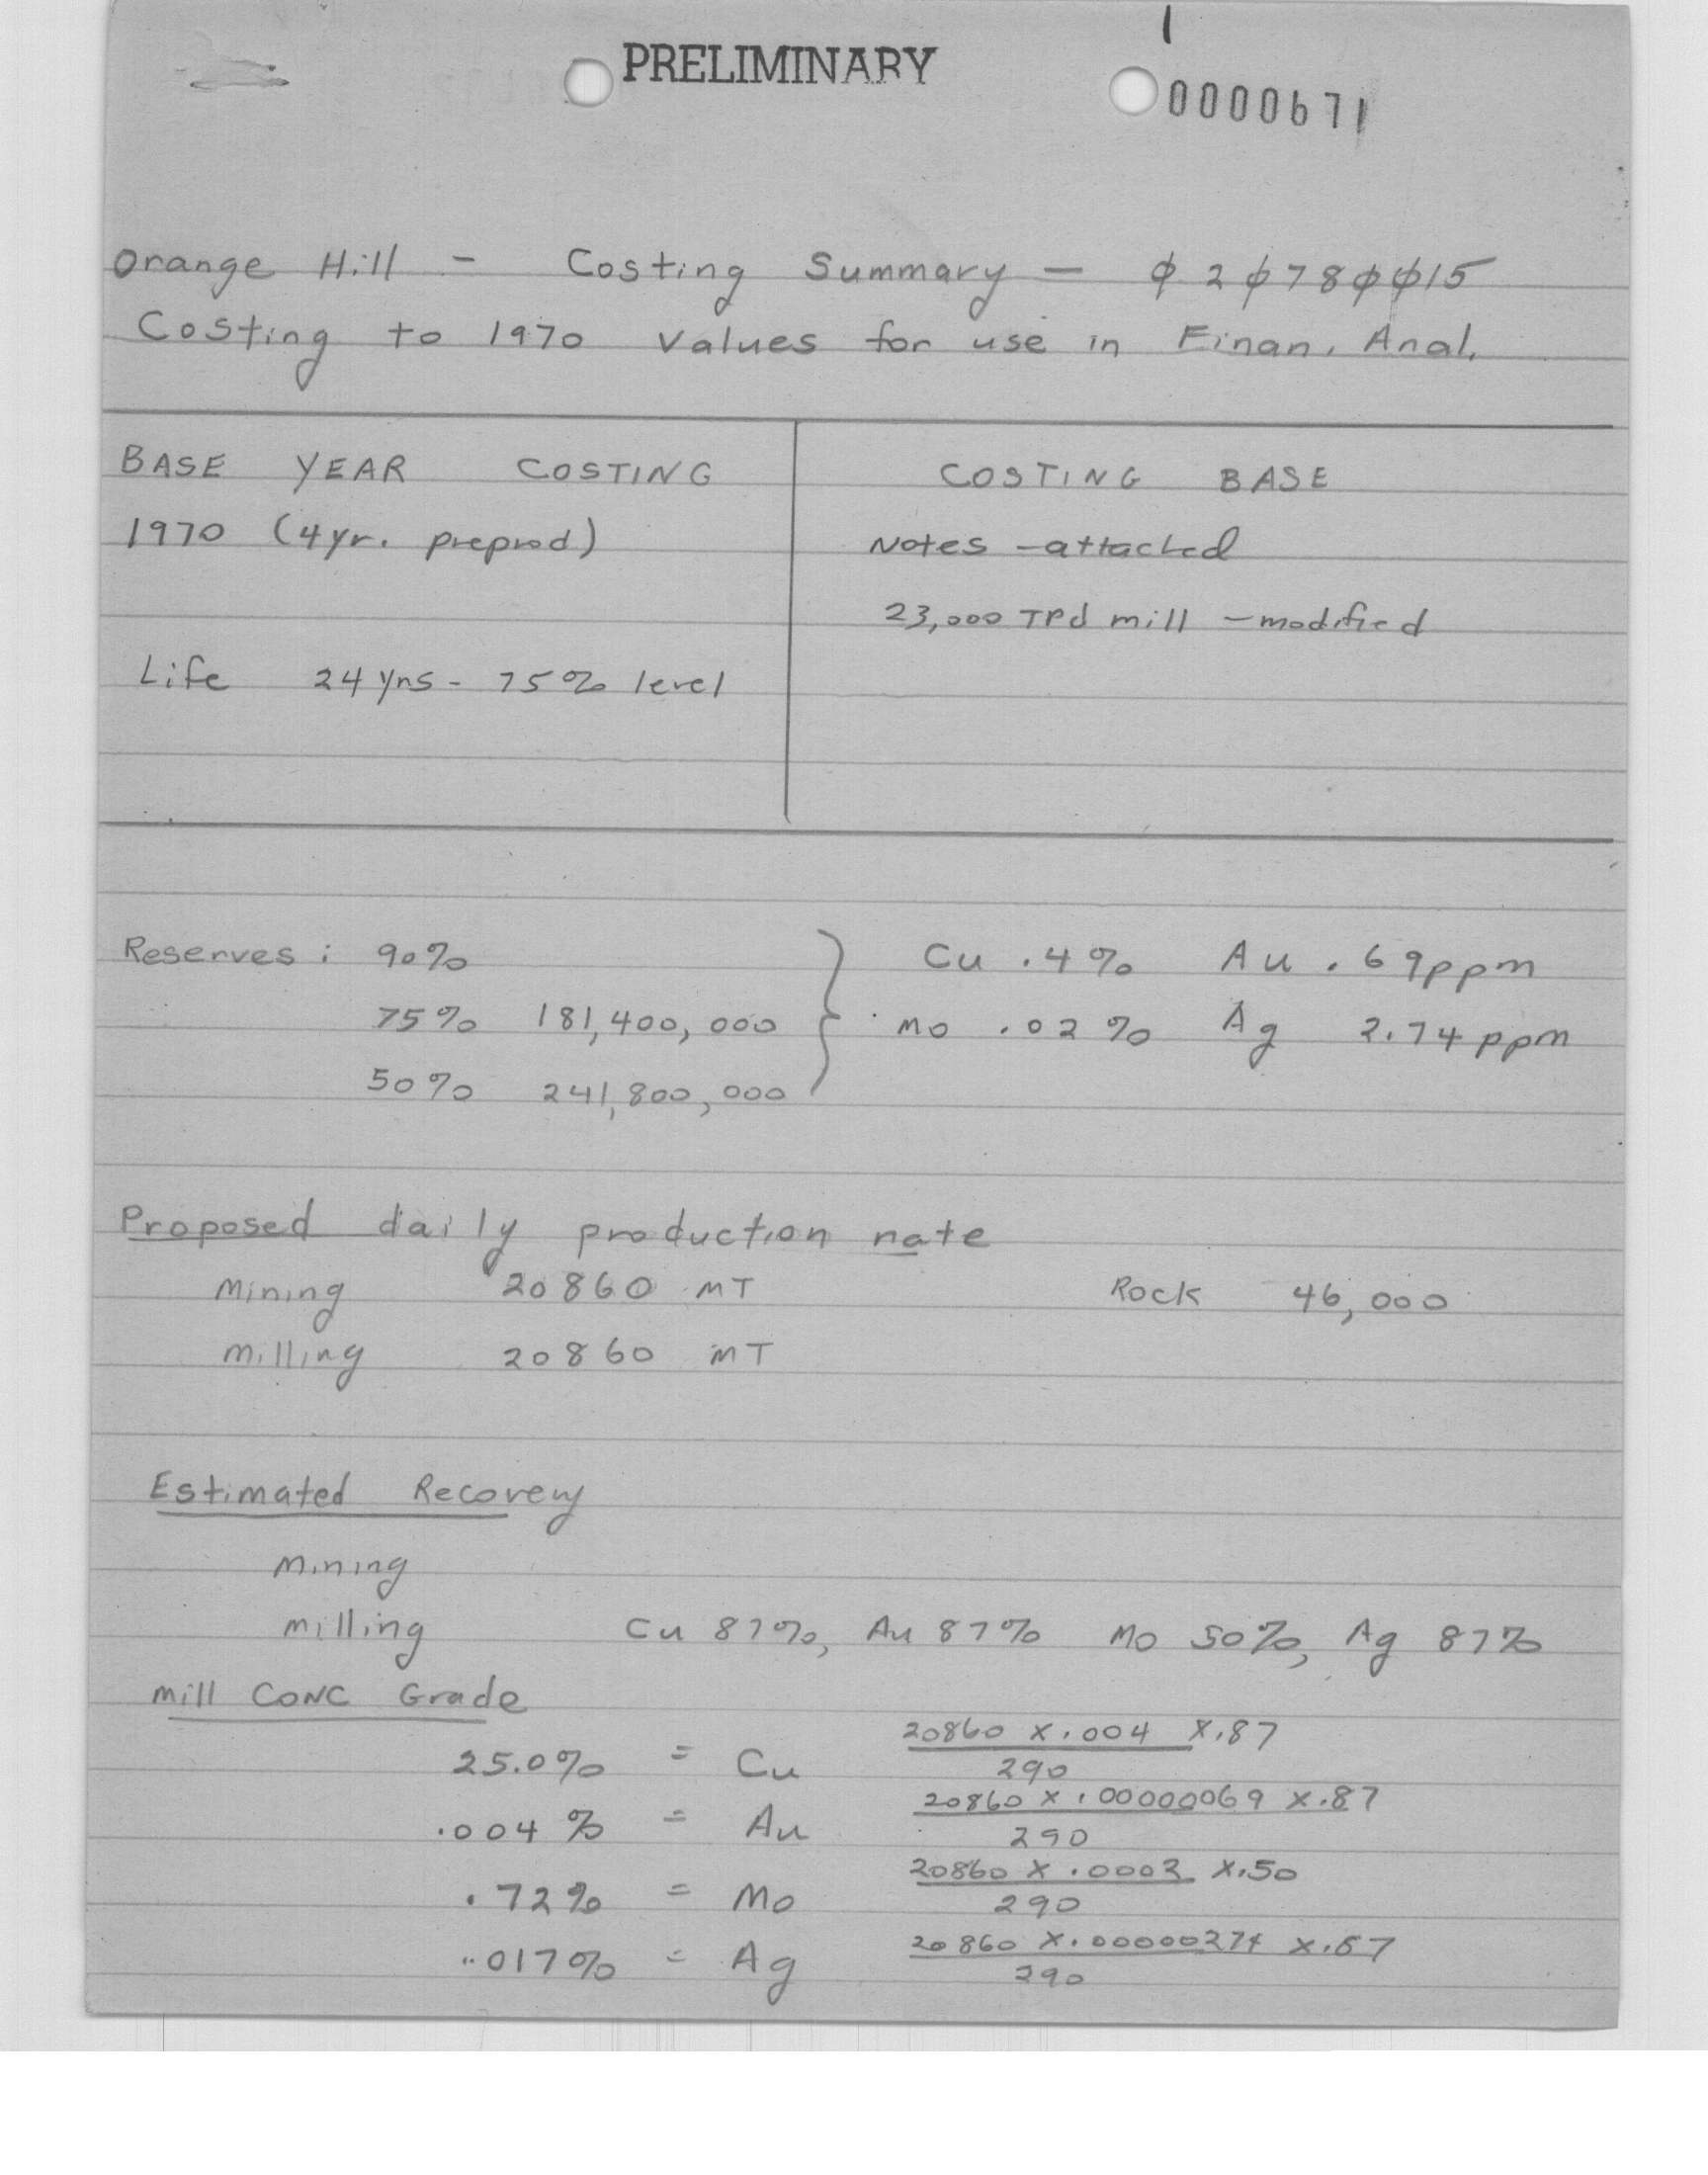 1
PRELIMINARY
0000671
Orange Hill - Costing Summary — φ2φ78φφ15
Costing to 1970 values for use in Finan. Anal.
BASE YEAR COSTING
1970 (4yr. preprod)
Life 24 yrs - 75% level
COSTING BASE
Notes - attached
23,000 TPd mill - modified
Reserves: 90%
75% 181,400,000
50% 241,800,000
} Cu .4% Au .69ppm
Mo .02% Ag 2.74 ppm
Proposed daily production rate
Mining 20860 MT Rock 46,000
Milling 20860 MT
Estimated Recovery
Mining
Milling Cu 87%, Au 87% Mo 50%, Ag 87%
Mill CONC Grade
25.0% = Cu 20860 x .004 x .87
290
.004% = Au 20860 x .00000069 x .87
290
.72% = Mo 20860 x .0002 x .50
290
.017% = Ag 20860 x .00000274 x .87
290